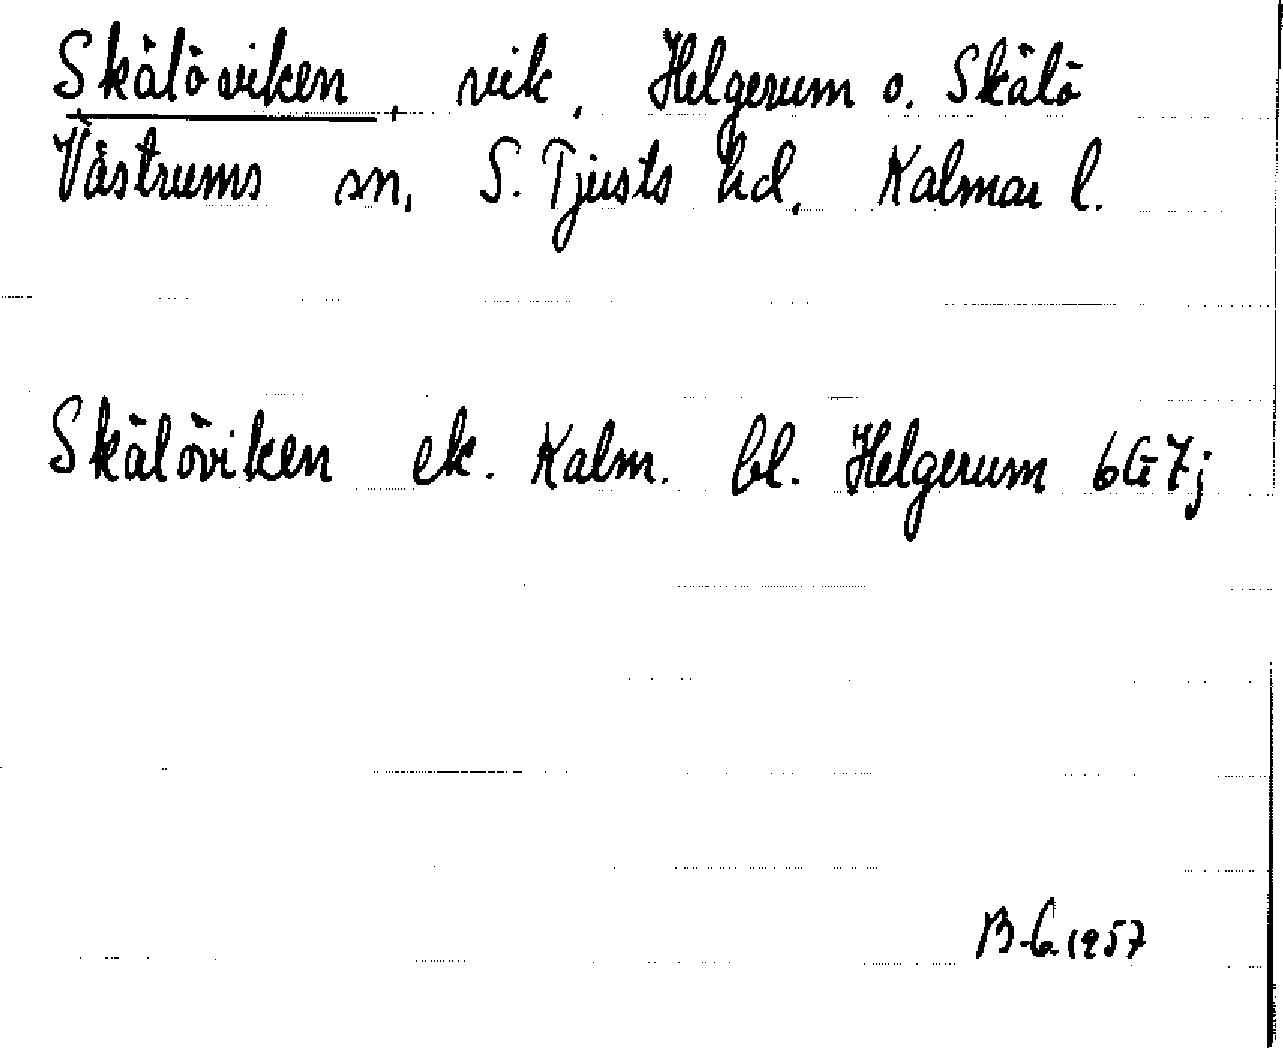 Skälöviken, vik, Helgerum o. Skälö
Västrums sn, S. Tjusts hd, Kalmar l.
Skälöviken ek. Kalm. bl. Helgerum 6G7j
B-G 1957